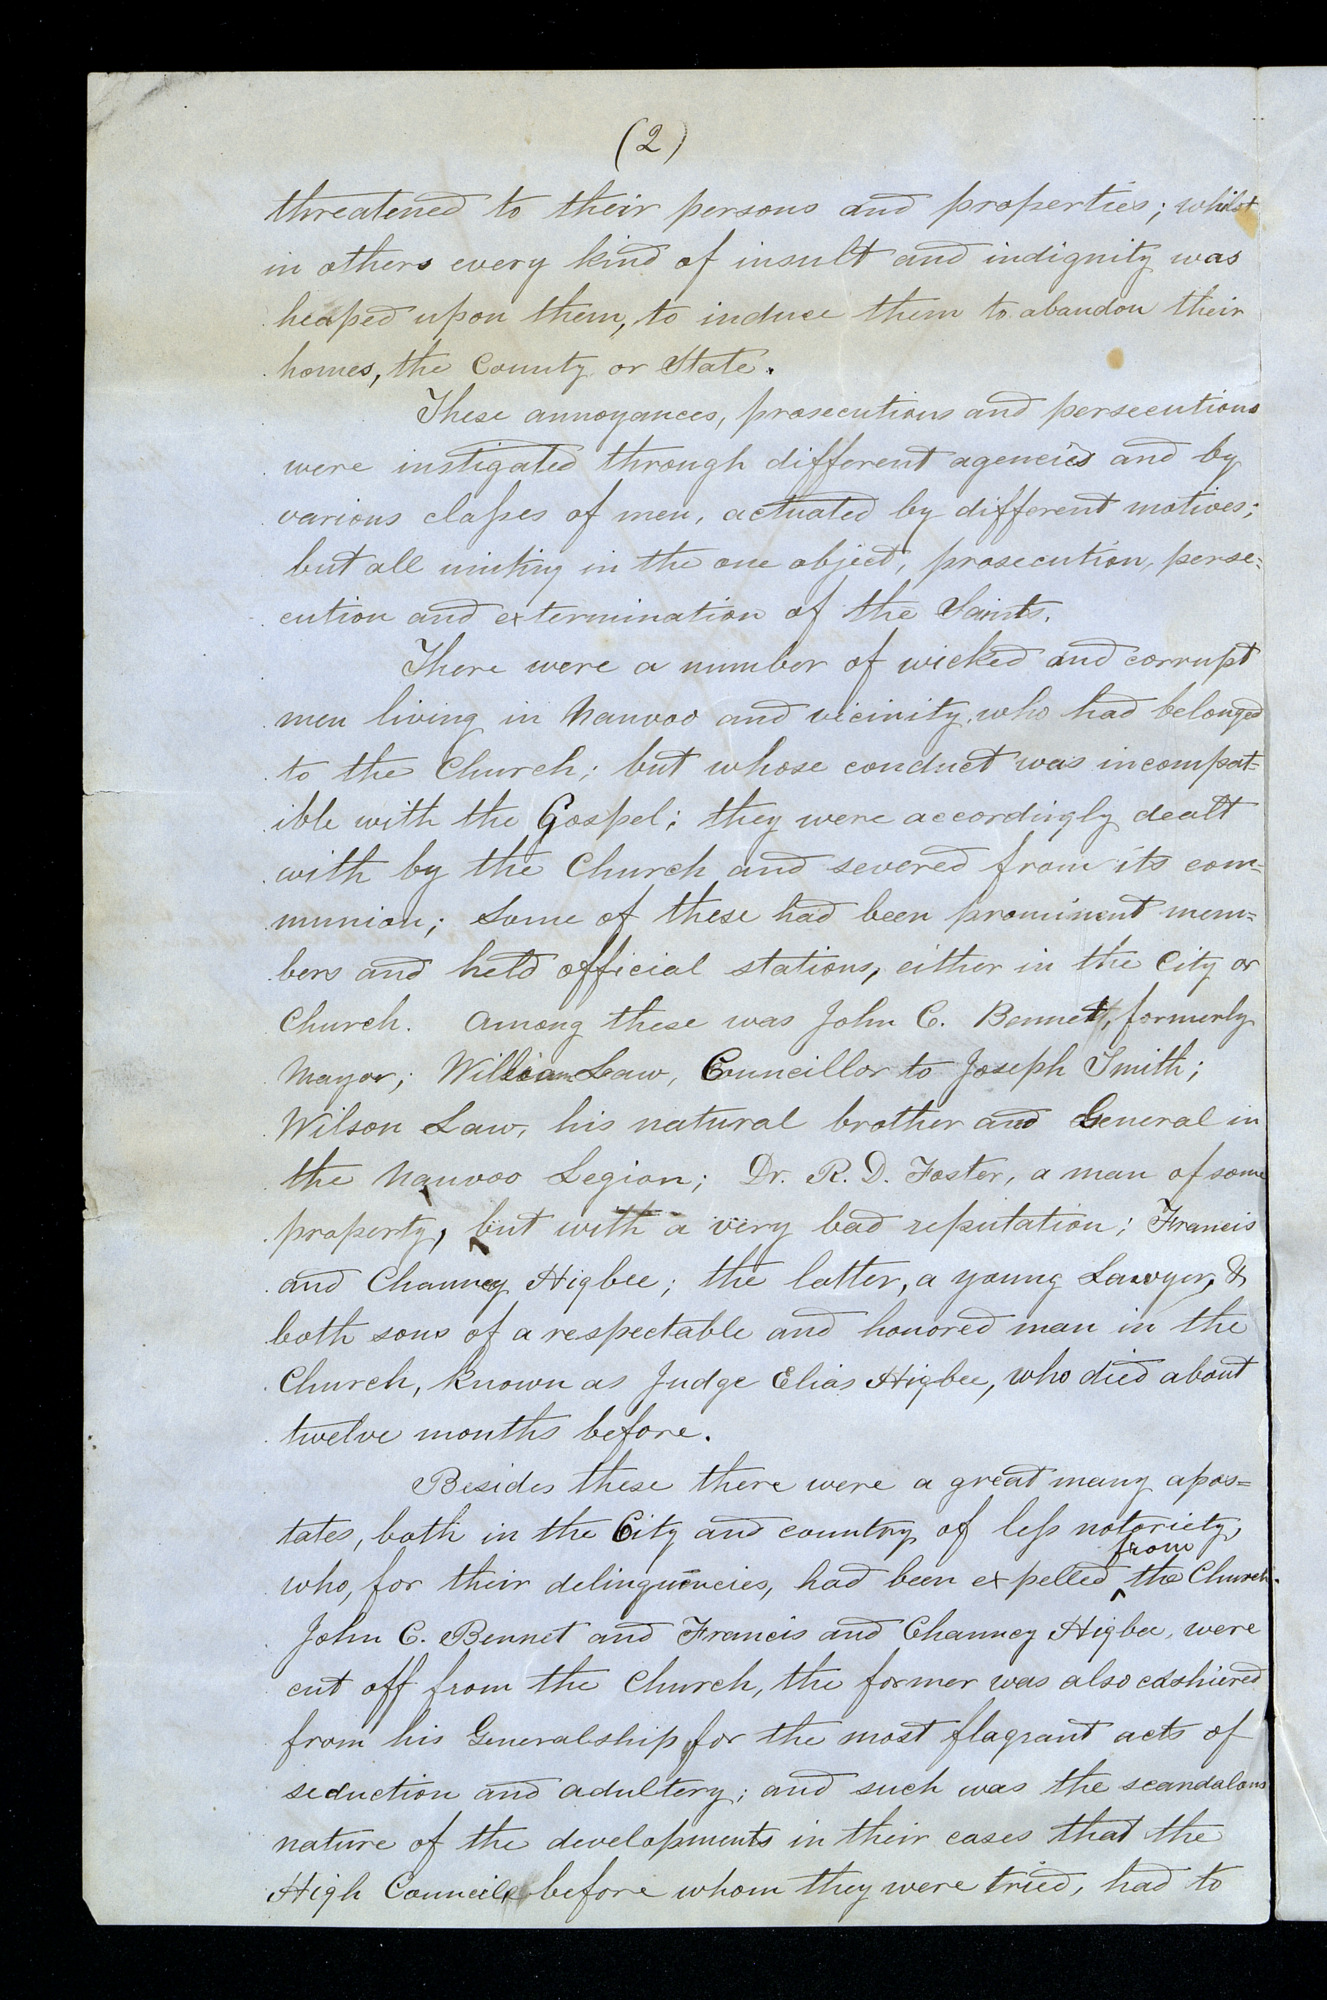 (2)
threatened to their persons and properties; whilst
in others every kind of insult and indignity was
heaped upon them, to induce them to abandon their
homes, the County or State.
These annoyances, prosecutions and persecutions
were instigated through different agencies and by
various claſses of men, actuated by different motives;
but all uniting in the one object, prosecution, perse=
cution and extermination of the Saints.
There were a number of wicked and corrupt
men living in Nauvoo and vicinity, who had belonged
to the Church; but whose conduct was incompat=
ible with the Gospel; they were accordingly dealt
with by the Church and severed from its com=
munion; Some of these had been prominent mem=
bers and held official stations, either in the City or
Church. Among these was John C. Bennet, formerly
Mayor; William Law, Councillor to Joseph Smith;
Wilson Law, his natural brother and General in
the Nauvoo Legion; Dr. R. D. Foster, a man of some
property, but with a very bad reputation; Francis
and Chauncy Higbee; the latter, a young Lawyer, &
both sons of a respectable and honored man in the
Church, known as Judge Elias Higbee, who died about
twelve months before.
Besides these there were a great many apos=
tates, both in the City and country of leſs notoriety,
from
who, for their delinquencies, had been expelled ‸ the Church.
John C. Bennet and Francis and Chauncy Higbee, were
cut off from the Church, the former was also cashiered
from his Generalship, for the most flagrant acts of
seduction and adultery; and such was the scandalous
nature of the developments in their cases that the
High Council before whom they were tried, had to